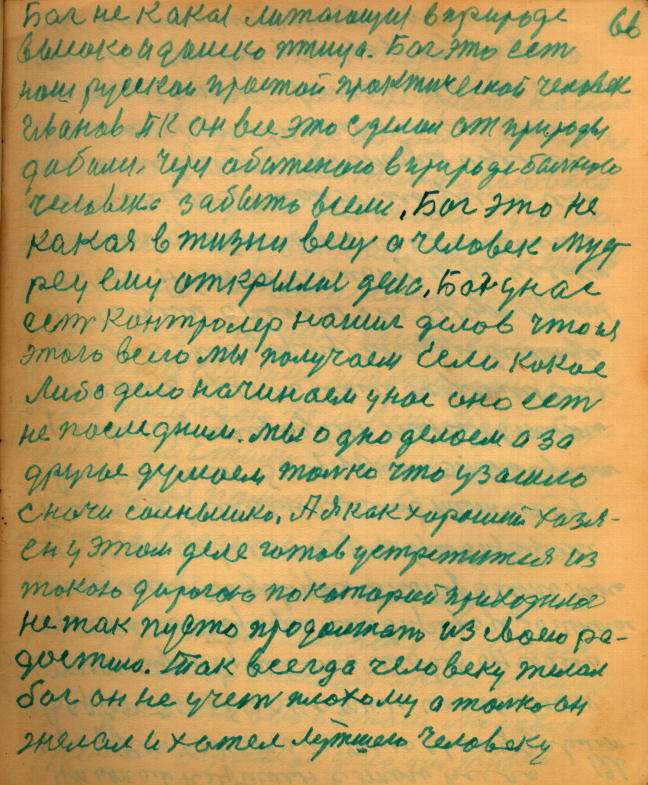 Бог не какая литающия в природе 66
высоко и далико птица. Бог это ест
наш русской простой практической человек
Иванов ПК он все это сделал от природы
добилси, через обиженого в природе болного
человека забыть всеми, Бог это не
какая в жизни вещ а человек муд
рец ему открылли дело, Бог у нас
ест контролер наших делов что из
этого всего мы получаем Если какое
либо дело начинаем у нас оно ест
не последним. мы одно делаем а за
другое думаем толко что узашло
с ночи солнышко, А я как хороший хозя-
ен у этом деле готов устретится из
токою дорогою по которай приходилос
не так пусто продолжать из своею ра-
достию. Так всегда человеку желал
бог он не учет плохому а толко он
желал и хотел лутшего человеку